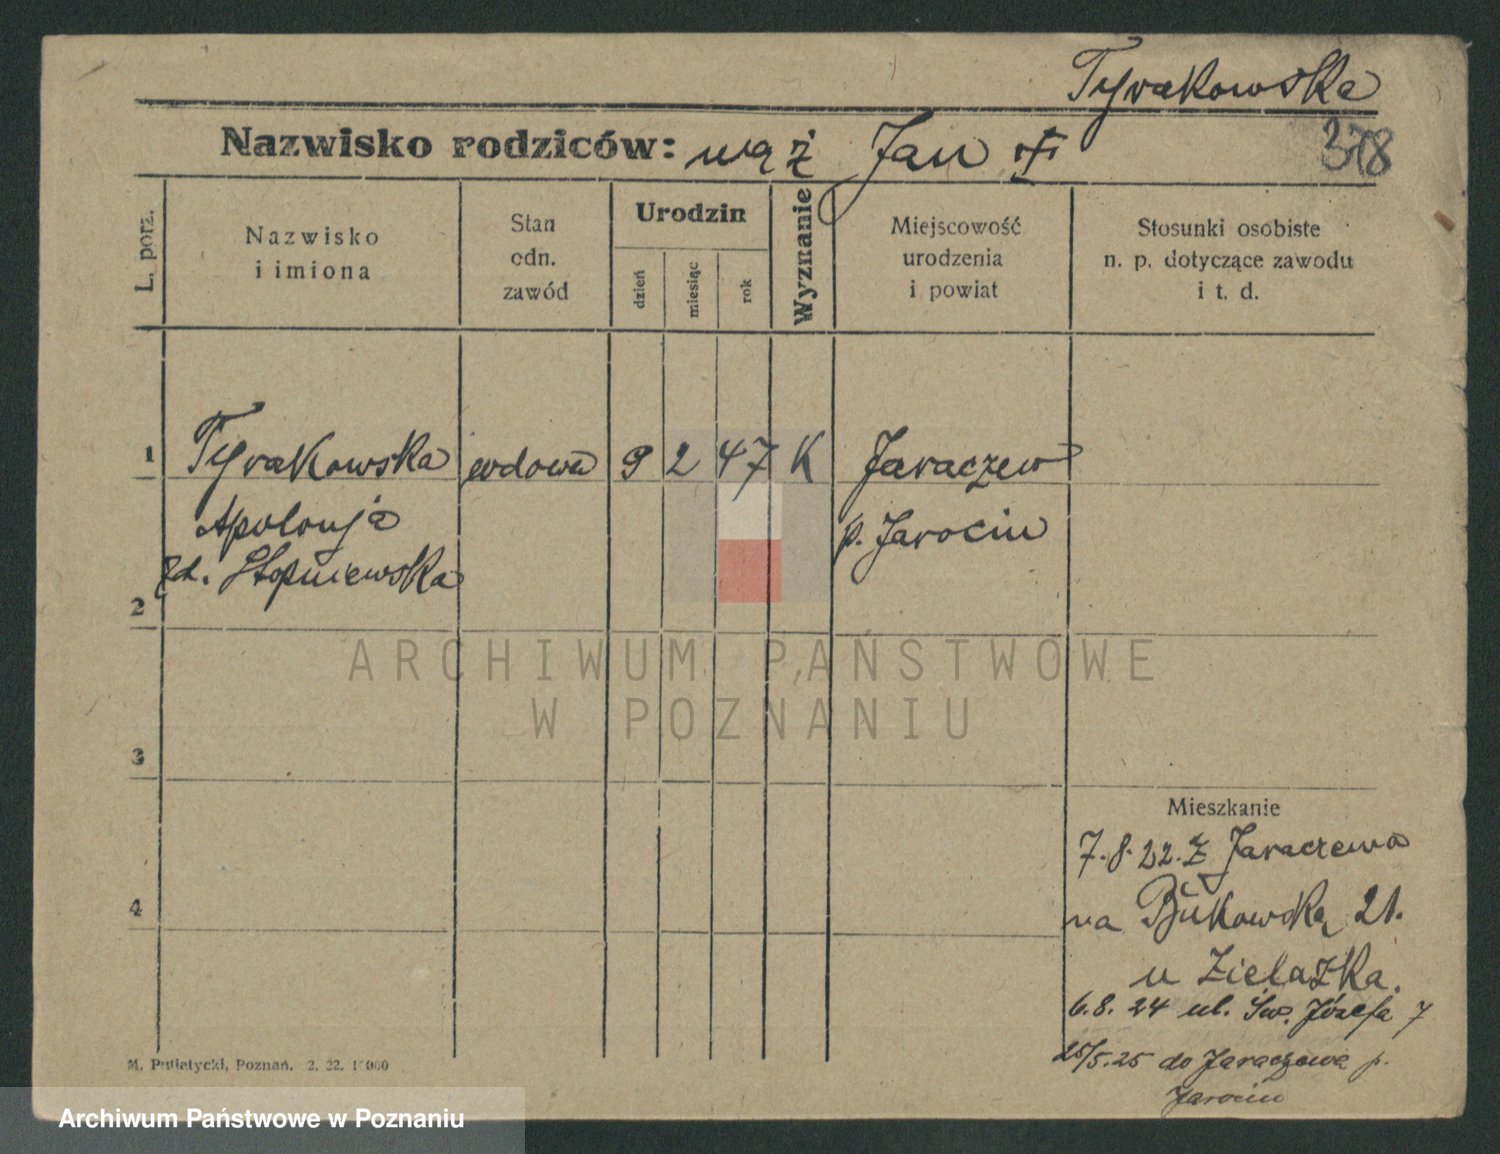 Tyrakowska
Nazwisko rodziców: mąż Jan
378
L. porz.
Nazwisko
i imiona
Stan
odn.
zawód
Urodzin
dzień
miesiąc
rok
Wyznanie
Miejscowość
urodzenia
i powiat
Stosunki osobiste
n. p. dotyczące zawodu
i t. d.
1 Tyrakowska wdowa 9 2 47 K Jaraczew
Apolonja p. Jarocin
zd. Stopniewska
2
ARCHIWUM PAŃSTWOWE
W POZNANIU
3
Mieszkanie
7.8.22. z Jaraczewa
4
na Bukowską 21.
u Zielazka.
6.8. 24 ul. Św. Józefa 7
25/5.25 do Jaraczewa p.
Jarocin
M. Putiatycki, Poznań. 2. 22.
Archiwum Państwowe w Poznaniu